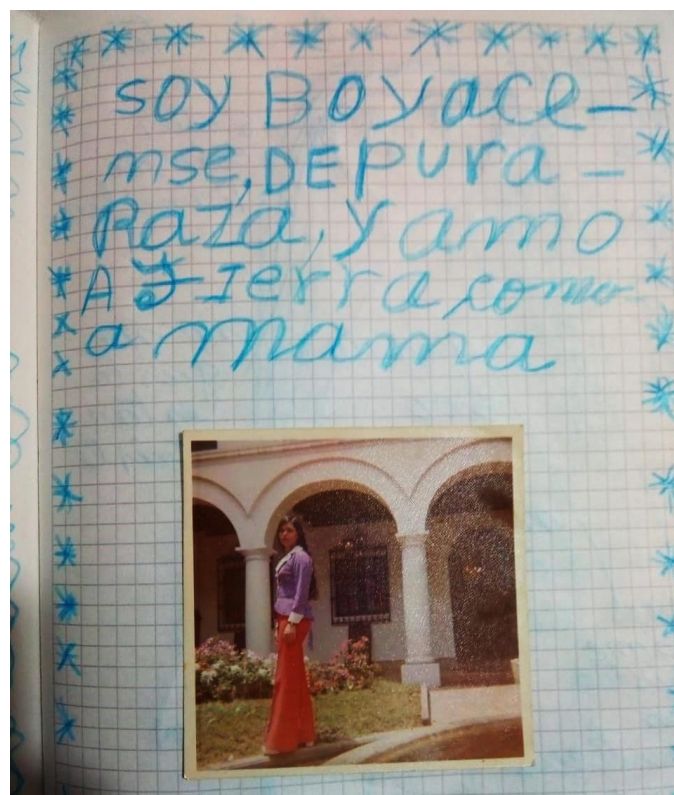 soy Boyace-
nse, DE pura -
Raza, y amo
A Tierra como
a mama